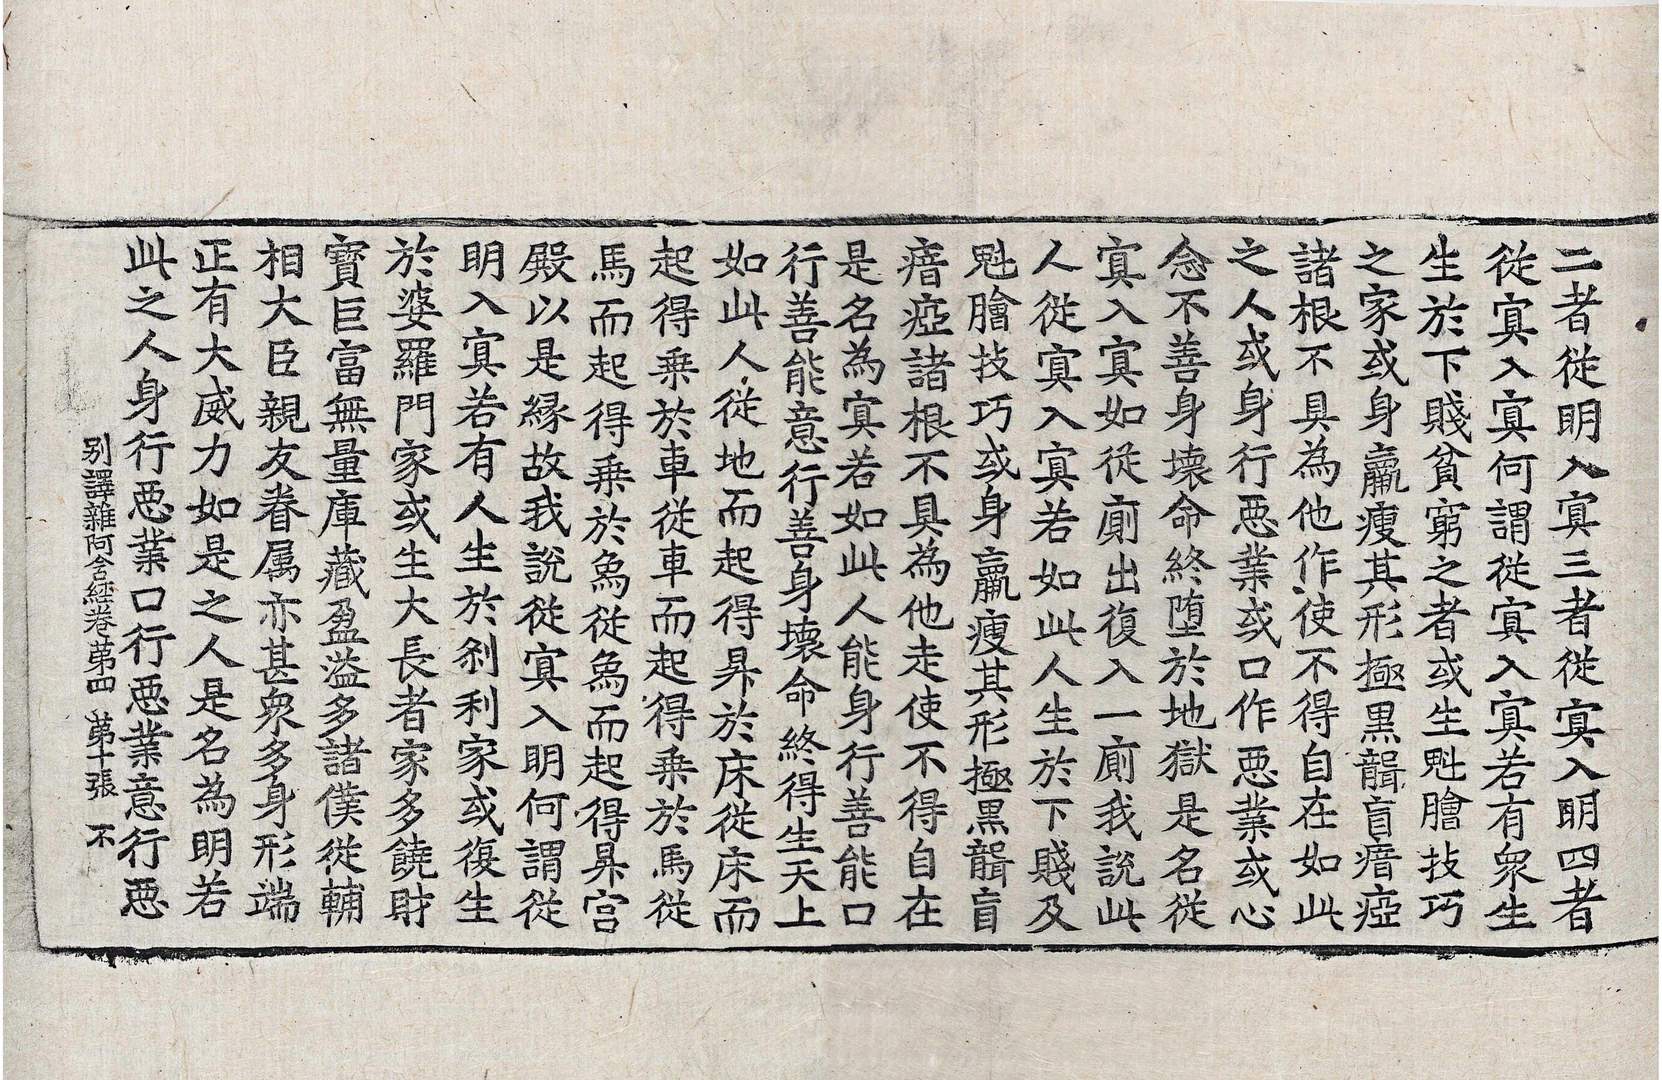 二者從明入㝠三者從㝠入明四者
從㝠入㝠何謂從㝠入㝠若有衆生
生於下賤貧窮之者或生魁膾技巧
之家或身羸瘦其形極黒聾盲瘖瘂
諸根不具為他作使不得自在如此
之人或身行惡業或口作惡業或心
念不善身壊命終墮於地獄是名從
㝠入㝠如從廁出復入一廁我說此
人從㝠入㝠若如此人生於下賤及
魁膾技巧或身羸瘦其形極黒聾盲
瘖瘂諸根不具為他走使不得自在
是名為㝠若如此人能身行善能口
行善能意行善身壊命終得生天上
如此人從地而起得昇於床從床而
起得乗於車從車而起得乗於馬從
馬而起得乗於象從象而起得昇宫
殿以是縁故我說從㝠入明何謂從
明入㝠若有人生於刹利家或復生
於婆羅門家或生大長者家多饒財
寶巨富無量庫藏盈溢多諸僕從輔
相大臣親友眷属亦甚衆多身形端
正有大威力如是之人是名為明若
此之人身行惡業口行惡業意行惡
别譯雜阿含經卷第四 第十張 不